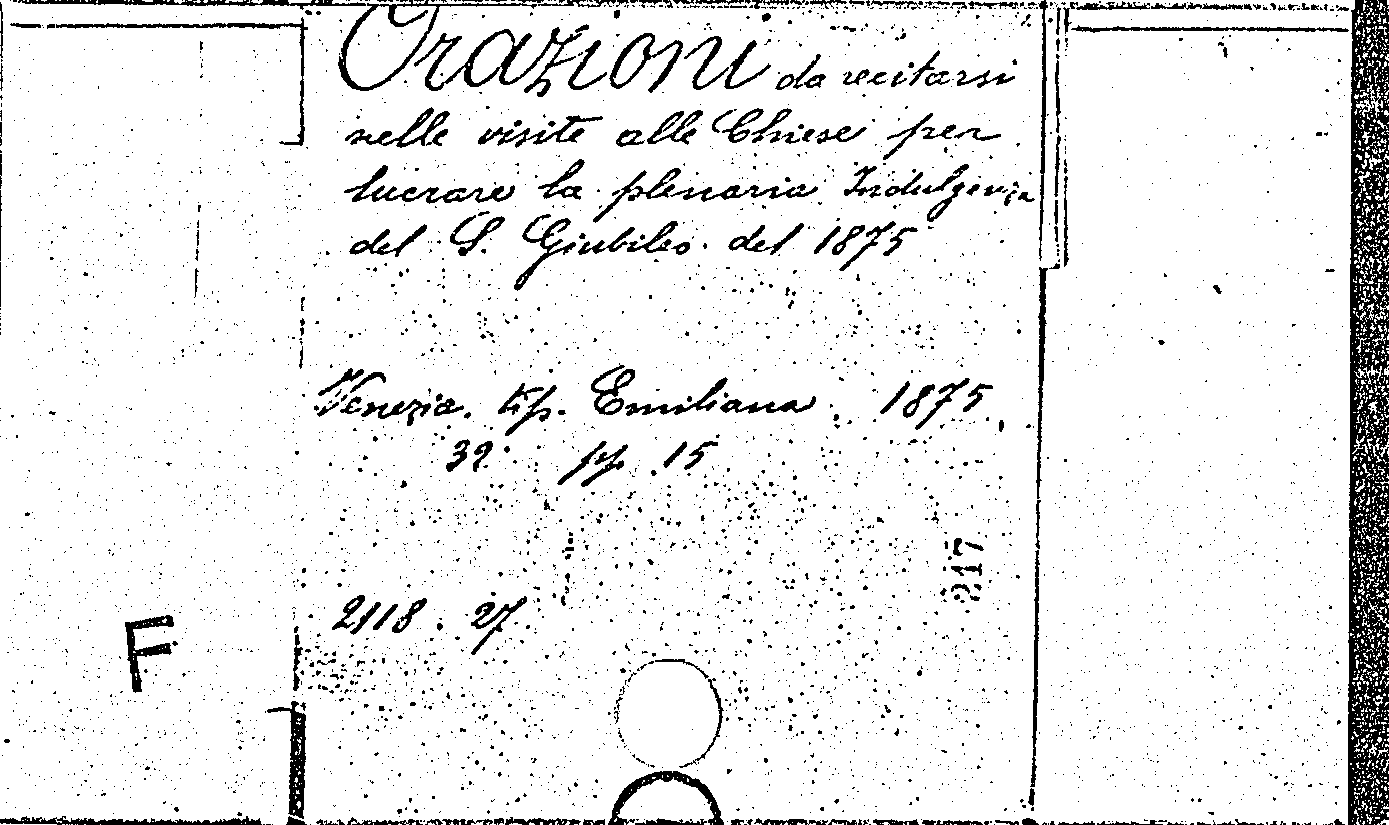 Orazioni da recitarsi
nelle visite alle Chiese per
lucrare la plenaria Indulgenza
del S. Giubileo del 1875
Venezia. tip. Emiliana. 1875.
32° pp. 15
217
2118. 27
F